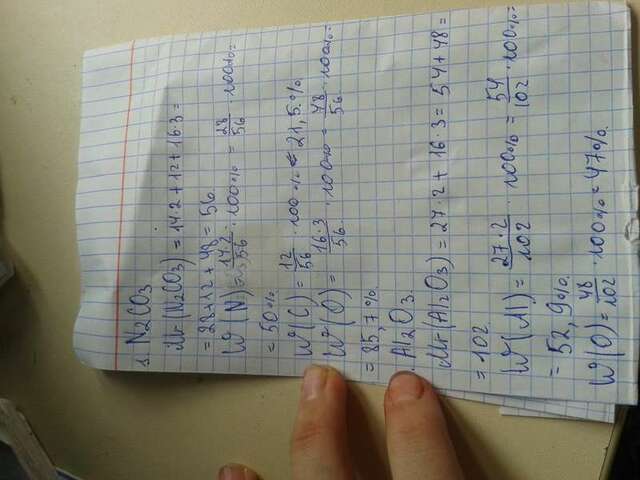 1. N2CO3
Mr (N2CO3) = 14·2 + 12 + 16·3 =
= 28 + 12 + 48 = 56.
W (N) = 14·2/56 · 100% = 28/56 · 100% =
= 50%
W (C) = 12/56 · 100% = 21,5%
W (O) = 16·3/56 · 100% = 48/56 · 100% =
= 85,7%.
Al2O3.
Mr (Al2O3) = 27·2 + 16·3 = 54 + 48 =
= 102
W (Al) = 27·2/102 · 100% = 54/102 · 100% =
= 52,9%.
W (O) = 48/102 · 100% = 47%.